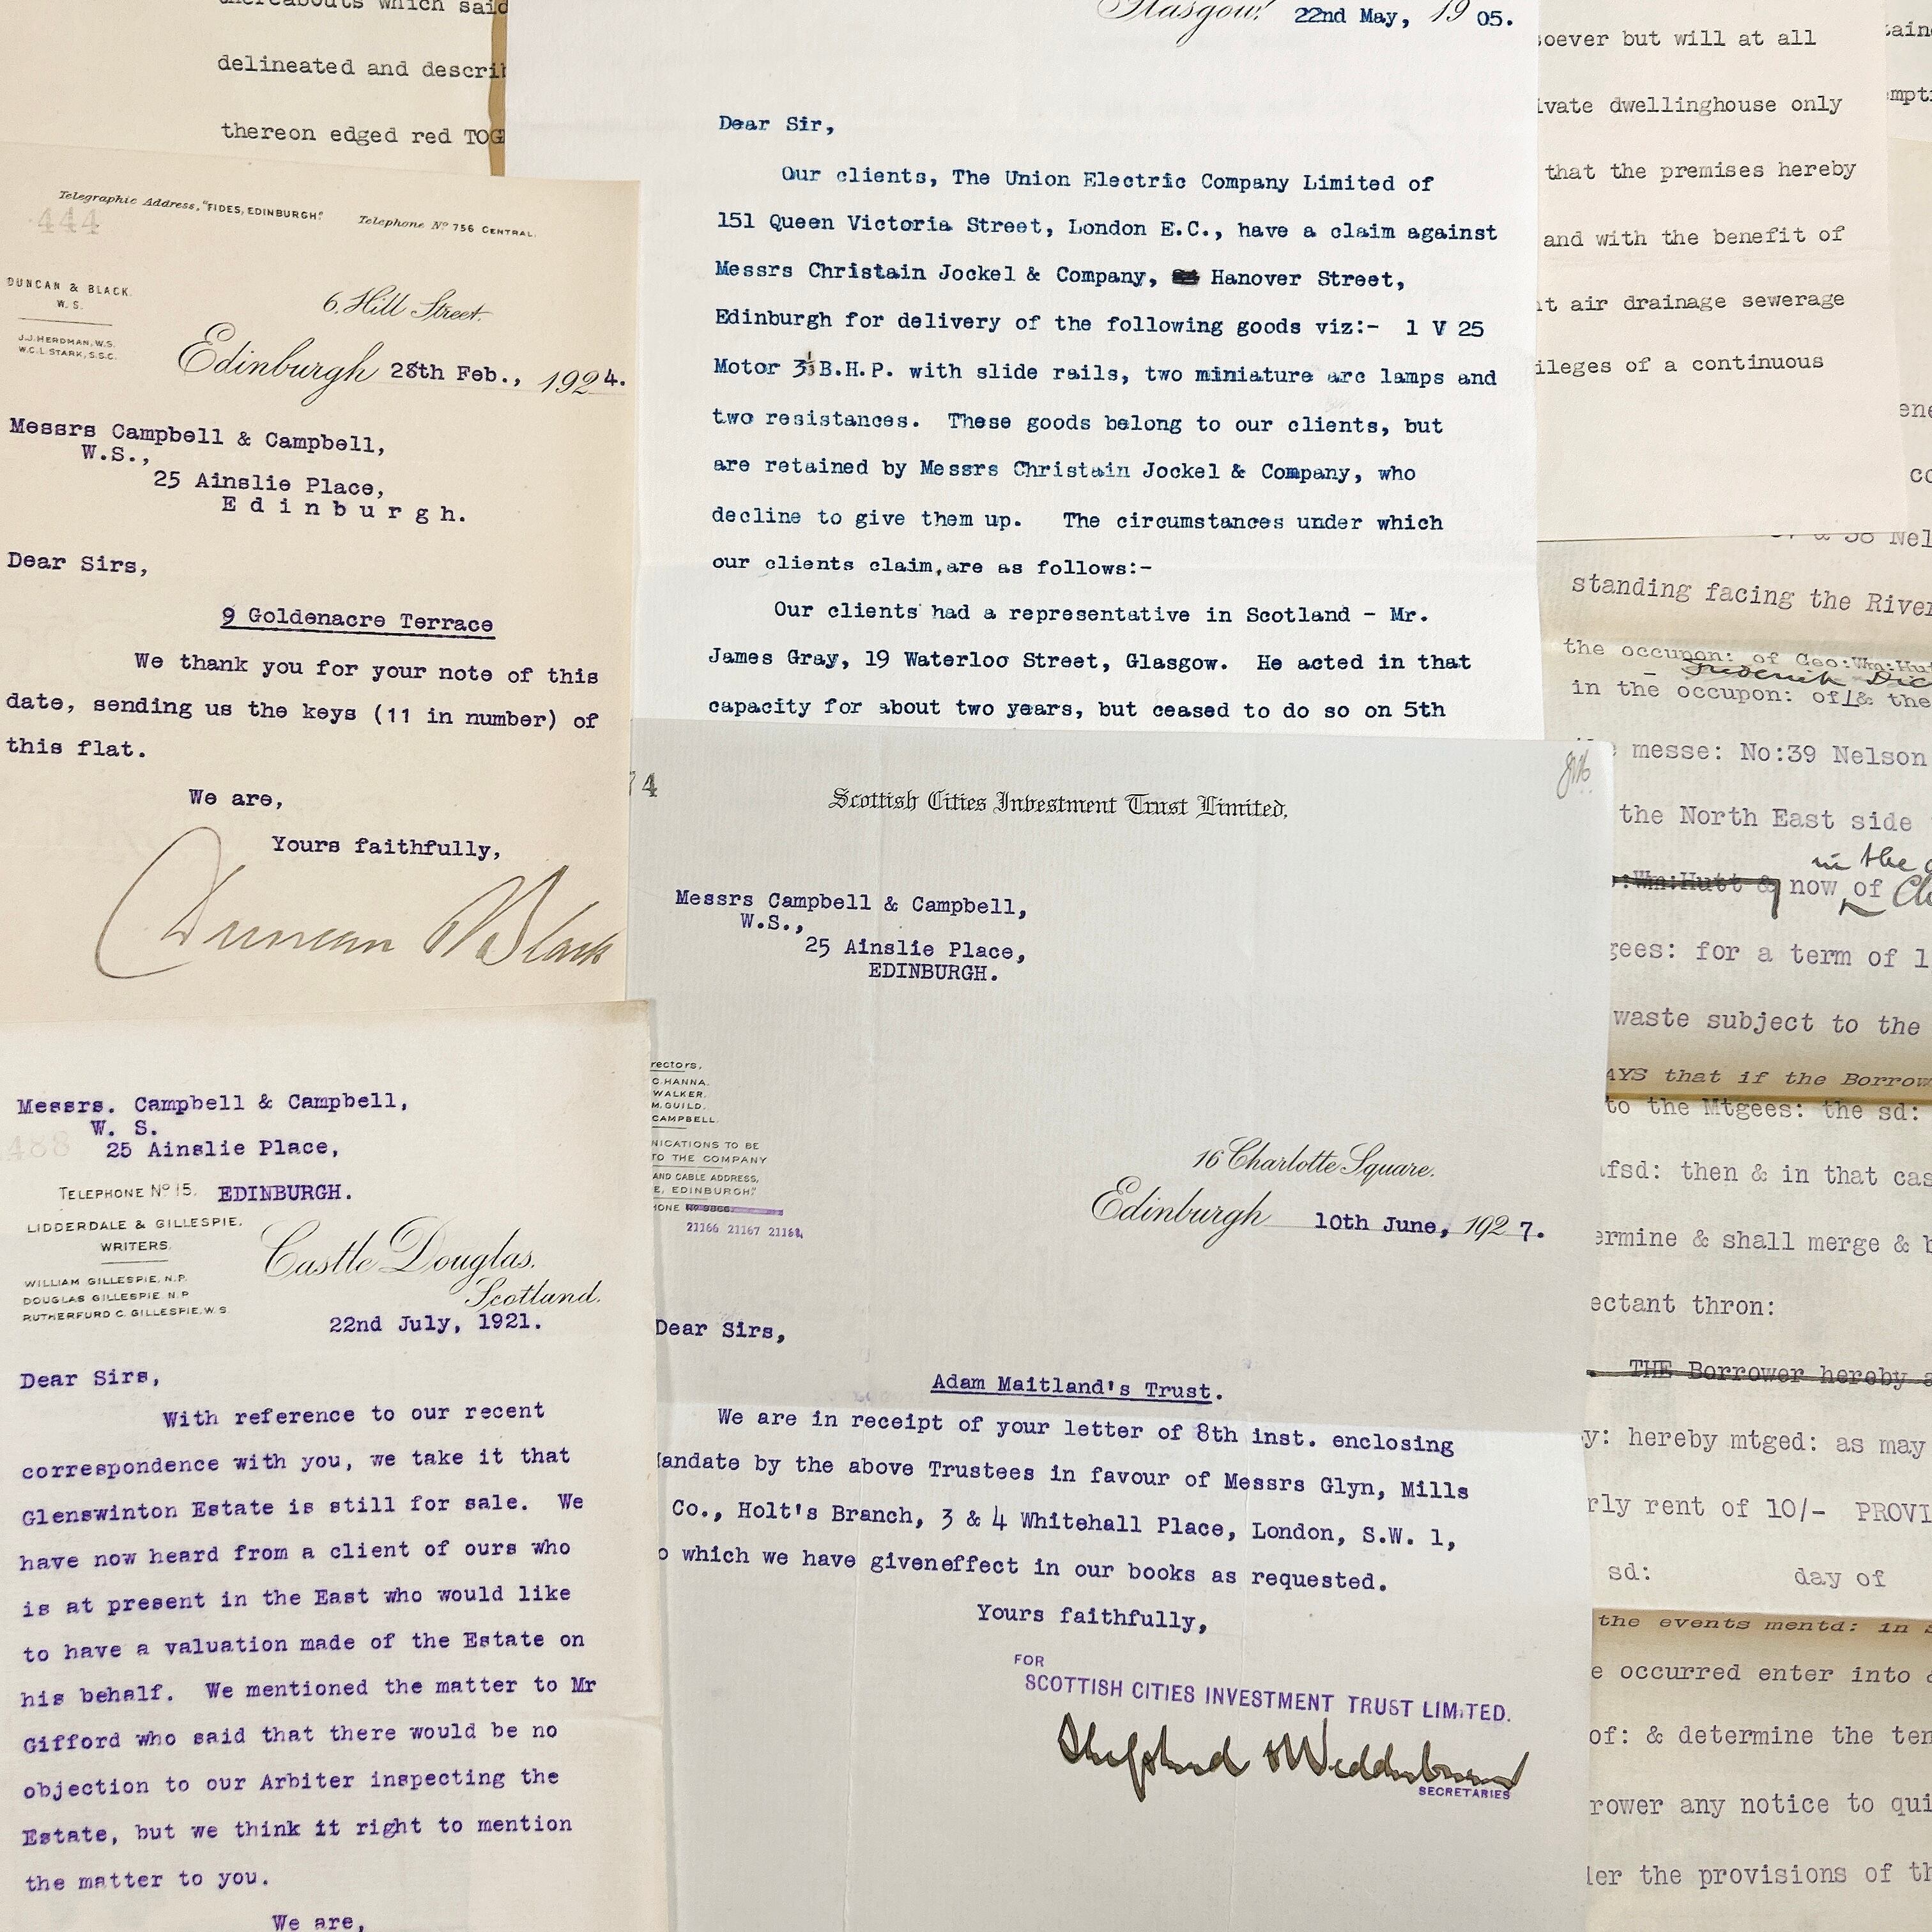 thereabouts which said
delineated and describ
thereon edged red TOG
Telegraphic Address, "FIDES, EDINBURGH." Telephone Nº 756 CENTRAL.
444
DUNCAN & BLACK.
W. S.
J.J. HERDMAN, W.S.
W.C.L. STARK, S.S.C.
6, Hill Street.
Edinburgh 28th Feb., 1924.
Messrs Campbell & Campbell,
W.S.,
25 Ainslie Place,
Edinburgh.
Dear Sirs,
9 Goldenacre Terrace
We thank you for your note of this
date, sending us the keys (11 in number) of
this flat.
We are,
Yours faithfully,
Duncan & Black
Glasgow, 22nd May, 1905.
Dear Sir,
Our clients, The Union Electric Company Limited of
151 Queen Victoria Street, London E.C., have a claim against
Messrs Christain Jockel & Company, Hanover Street,
Edinburgh for delivery of the following goods viz:- 1 V 25
Motor 3½ B.H.P. with slide rails, two miniature arc lamps and
two resistances. These goods belong to our clients, but
are retained by Messrs Christain Jockel & Company, who
decline to give them up. The circumstances under which
our clients claim, are as follows:-
Our clients had a representative in Scotland - Mr.
James Gray, 19 Waterloo Street, Glasgow. He acted in that
capacity for about two years, but ceased to do so on 5th
Messrs. Campbell & Campbell,
W. S.
25 Ainslie Place,
488
TELEPHONE Nº 15. EDINBURGH.
LIDDERDALE & GILLESPIE,
WRITERS.
WILLIAM GILLESPIE, N.P.
DOUGLAS GILLESPIE, N.P
RUTHERFURD C. GILLESPIE, W.S
Castle Douglas,
Scotland.
22nd July, 1921.
Dear Sirs,
With reference to our recent
correspondence with you, we take it that
Glenswinton Estate is still for sale. We
have now heard from a client of ours who
is at present in the East who would like
to have a valuation made of the Estate on
his behalf. We mentioned the matter to Mr
Gifford who said that there would be no
objection to our Arbiter inspecting the
Estate, but we think it right to mention
the matter to you.
We are,
74
Scottish Cities Investment Trust Limited.
Messrs Campbell & Campbell,
W.S.,
25 Ainslie Place,
EDINBURGH.
rectors,
C. HANNA.
WALKER.
M. GUILD.
CAMPBELL.
NICATIONS TO BE
TO THE COMPANY
AND CABLE ADDRESS,
E, EDINBURGH."
HONE Nº 9866.
21166 21167 21168
16 Charlotte Square.
Edinburgh 10th June, 1927.
Dear Sirs,
Adam Maitland's Trust.
We are in receipt of your letter of 8th inst. enclosing
andate by the above Trustees in favour of Messrs Glyn, Mills
Co., Holt's Branch, 3 & 4 Whitehall Place, London, S.W. 1,
o which we have giveneffect in our books as requested.
Yours faithfully,
FOR
SCOTTISH CITIES INVESTMENT TRUST LIMITED.
Shepherd & Wedderburn
SECRETARIES
soever but will at all
ivate dwellinghouse only
that the premises hereby
and with the benefit of
t air drainage sewerage
ileges of a continuous
tain
empt
ene
co
& 38 Nel
standing facing the River
the occupon: of Geo:Wm:Hut
Frederick Dic
in the occupon: of & the
messe: No:39 Nelson
the North East side
in the
:Wm:Hutt & now of
gees: for a term of l
waste subject to the
AYS that if the Borrow
to the Mtgees: the sd:
afsd: then & in that cas
ermine & shall merge & b
ectant thron:
THE Borrower hereby a
y: hereby mtged: as may
rly rent of 10/- PROVI
sd: day of
the events mentd: in s
e occurred enter into
of: & determine the ten
rower any notice to qui
der the provisions of th